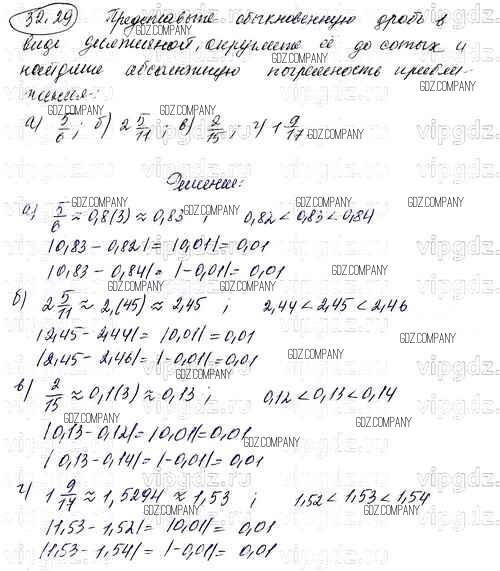 32.29 Представьте обыкновенную дробь в
виде десятичной, округлите её до сотых и
найдите абсолютную погрешность прибли-
жения:
а) 5/6; б) 2 5/11; в) 2/15; г) 1 9/17
Решение:
а) 5/6 ≈ 0,8(3) ≈ 0,83 ; 0,82 < 0,83 < 0,84
|0,83 - 0,82| = |0,01| = 0,01
|0,83 - 0,84| = |-0,01| = 0,01
б) 2 5/11 ≈ 2,(45) ≈ 2,45 ; 2,44 < 2,45 < 2,46
|2,45 - 2,44| = |0,01| = 0,01
|2,45 - 2,46| = |-0,01| = 0,01
в) 2/15 ≈ 0,1(3) ≈ 0,13 ; 0,12 < 0,13 < 0,14
|0,13 - 0,12| = |0,01| = 0,01
|0,13 - 0,14| = |-0,01| = 0,01
г) 1 9/17 ≈ 1,5294 ≈ 1,53 ; 1,52 < 1,53 < 1,54
|1,53 - 1,52| = |0,01| = 0,01
|1,53 - 1,54| = |-0,01| = 0,01
GDZ.COMPANY
vipgdz.ru